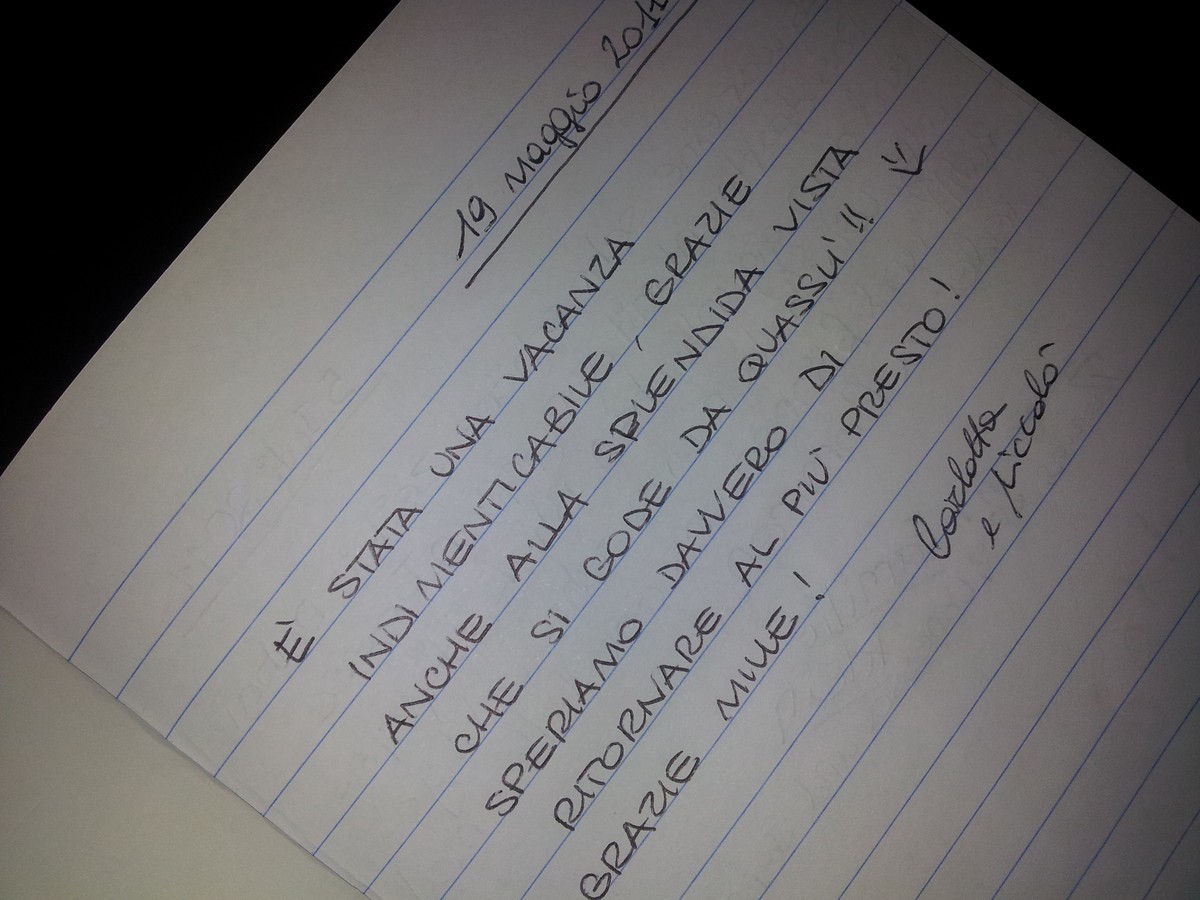 19 Maggio 2011
È STATA UNA VACANZA
INDIMENTICABILE, GRAZIE
ANCHE ALLA SPLENDIDA VISTA
CHE SI GODE DA QUASSÙ!!
SPERIAMO DAVVERO DI
RITORNARE AL PIÙ PRESTO!
GRAZIE MILLE!
Carlotta
e Niccolò